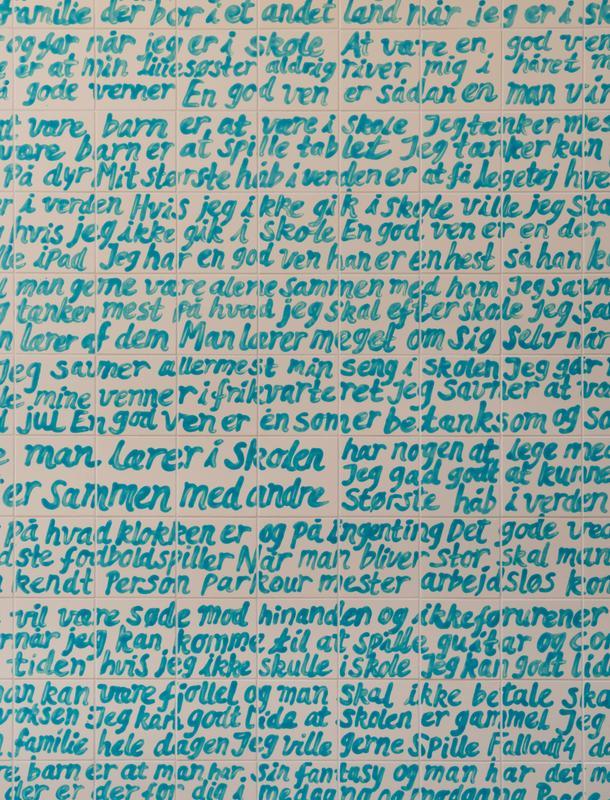 familie der bor i et andet land når jeg er i sk
og far når jeg er i skole At være en god ven
e er at min lillesøster aldrig river mig i håret m
gode venner En god ven er sådan en man vi
vare barn er at være i skole Jeg tænker mes
være barn er at spille tablet Jeg tænker kun
På dyr Mit største håb i verden er at få legetøj hve
r i verden Hvis jeg ikke gik i skole ville jeg sta
hvis jeg ikke gik i skole En god ven er en der
lle iPad Jeg har en god ven han er en hest så han k
man gerne være alene sammen med ham Jeg savn
g tænker mest på hvad jeg skal efter skole Jeg sa
n lærer af dem Man lærer meget om sig selv når
Jeg savner allermest min seng i skolen Jeg gør
le mine venner i frikvarteret Jeg savner at v
d jul En god ven er en som er betænksom og Sø
e man lærer i Skolen har nogen at lege med
er sammen med andre Jeg gad godt at kunne
Største håb i verden
På hvad klokken er og på ingenting Det gode ved
dste fodboldspiller Når man bliver stor skal man
kendt Person Parkour mester arbejdsløs kon
vil være søde mod hinanden og ikke forurener
når jeg kan komme til at spille guitar og Co
tiden hvis jeg ikke skulle i skole Jeg kan godt lid
an kan være fjollet og man skal ikke betale ska
voksen :Jeg kan godt lide at skolen er gammel Jeg
familie hele dagen Jeg ville gerne Spille Fallout 4 d
e barn er at man har sin fantasy og man har det m
der er der for dig i medgang og modgang Peace